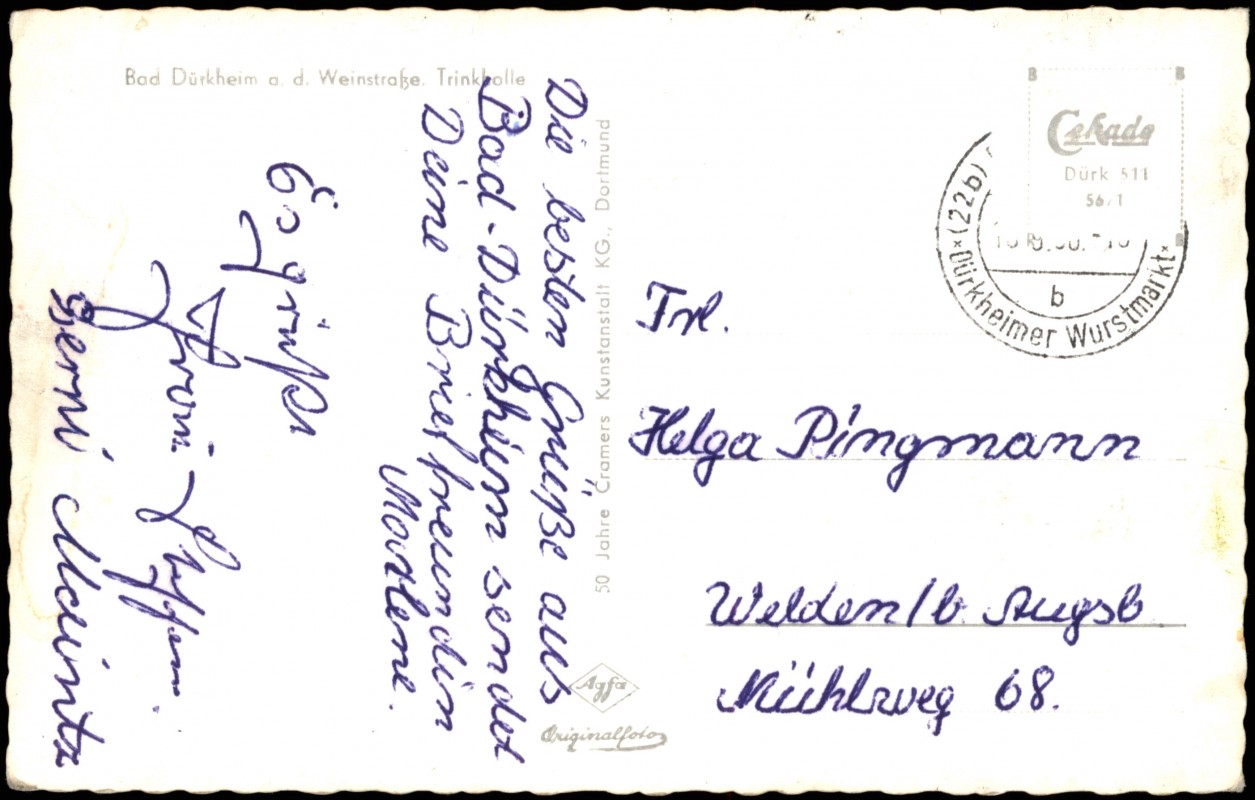 Bad Dürkheim a. d. Weinstraße. Trinkhalle
Die besten Grüße aus
Bad-Dürkheim sendet
Deine Brieffreundin
Marlene.
Es grüßt
Gerni Mauntz
50 Jahre Cramers Kunstanstalt KG., Dortmund
Agfa
Originalfoto
Cekade
Dürk 511
56/1
(22b)
b
*Dürkheimer Wurstmarkt*
Frl.
Helga Pingmann
Welden/b. Augsb
Mühlweg 68.